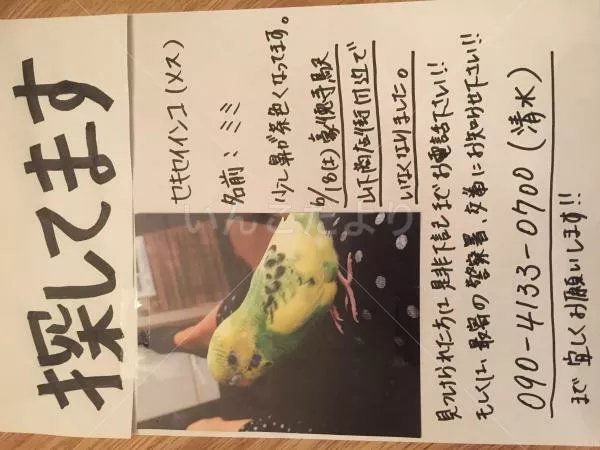 探してます
セキセイインコ（メス）
名前：ミミ
少し鼻が茶色くなってます。
6/18(土)豪徳寺駅
山下商店街周辺で
いなくなりました。
見つけられた方は是非下記までお電話下さい!!
もしくは、最寄の警察署、交番にお知らせ下さい!!
090-4133-0700(清水)
まで宜しくお願いします!!
いんこだより